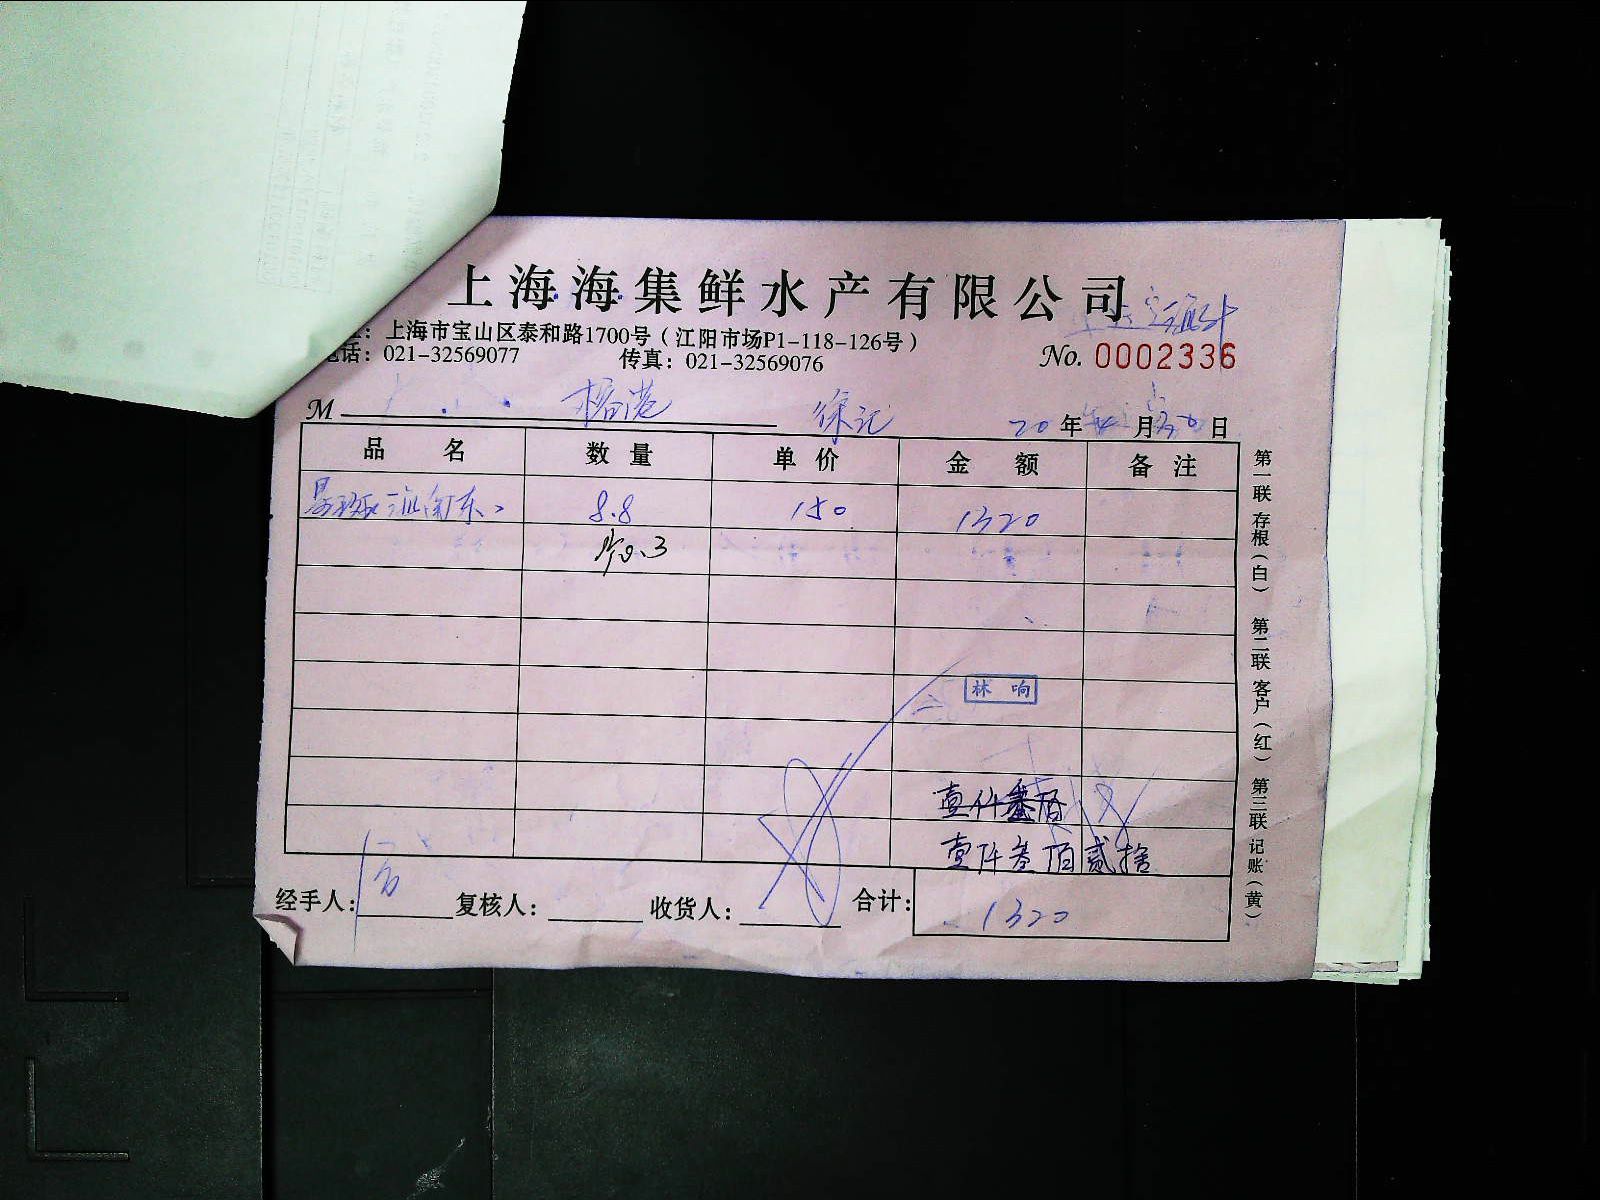 上海海集鲜水产有限公司
上海市宝山区泰和路1700号（江阳市场P1-118-126号）
电话：021-32569077 传真：021-32569076 No. 0002336
M 徐记 20 年 月 日
品名 数量 单价 金额 备注
8.8 150 1320
0.3
林响
壹仟叁佰
壹仟叁佰贰拾
经手人： 复核人： 收货人： 合计： 1320
第一联 存根（白） 第二联 客户（红） 第三联 记账（黄）